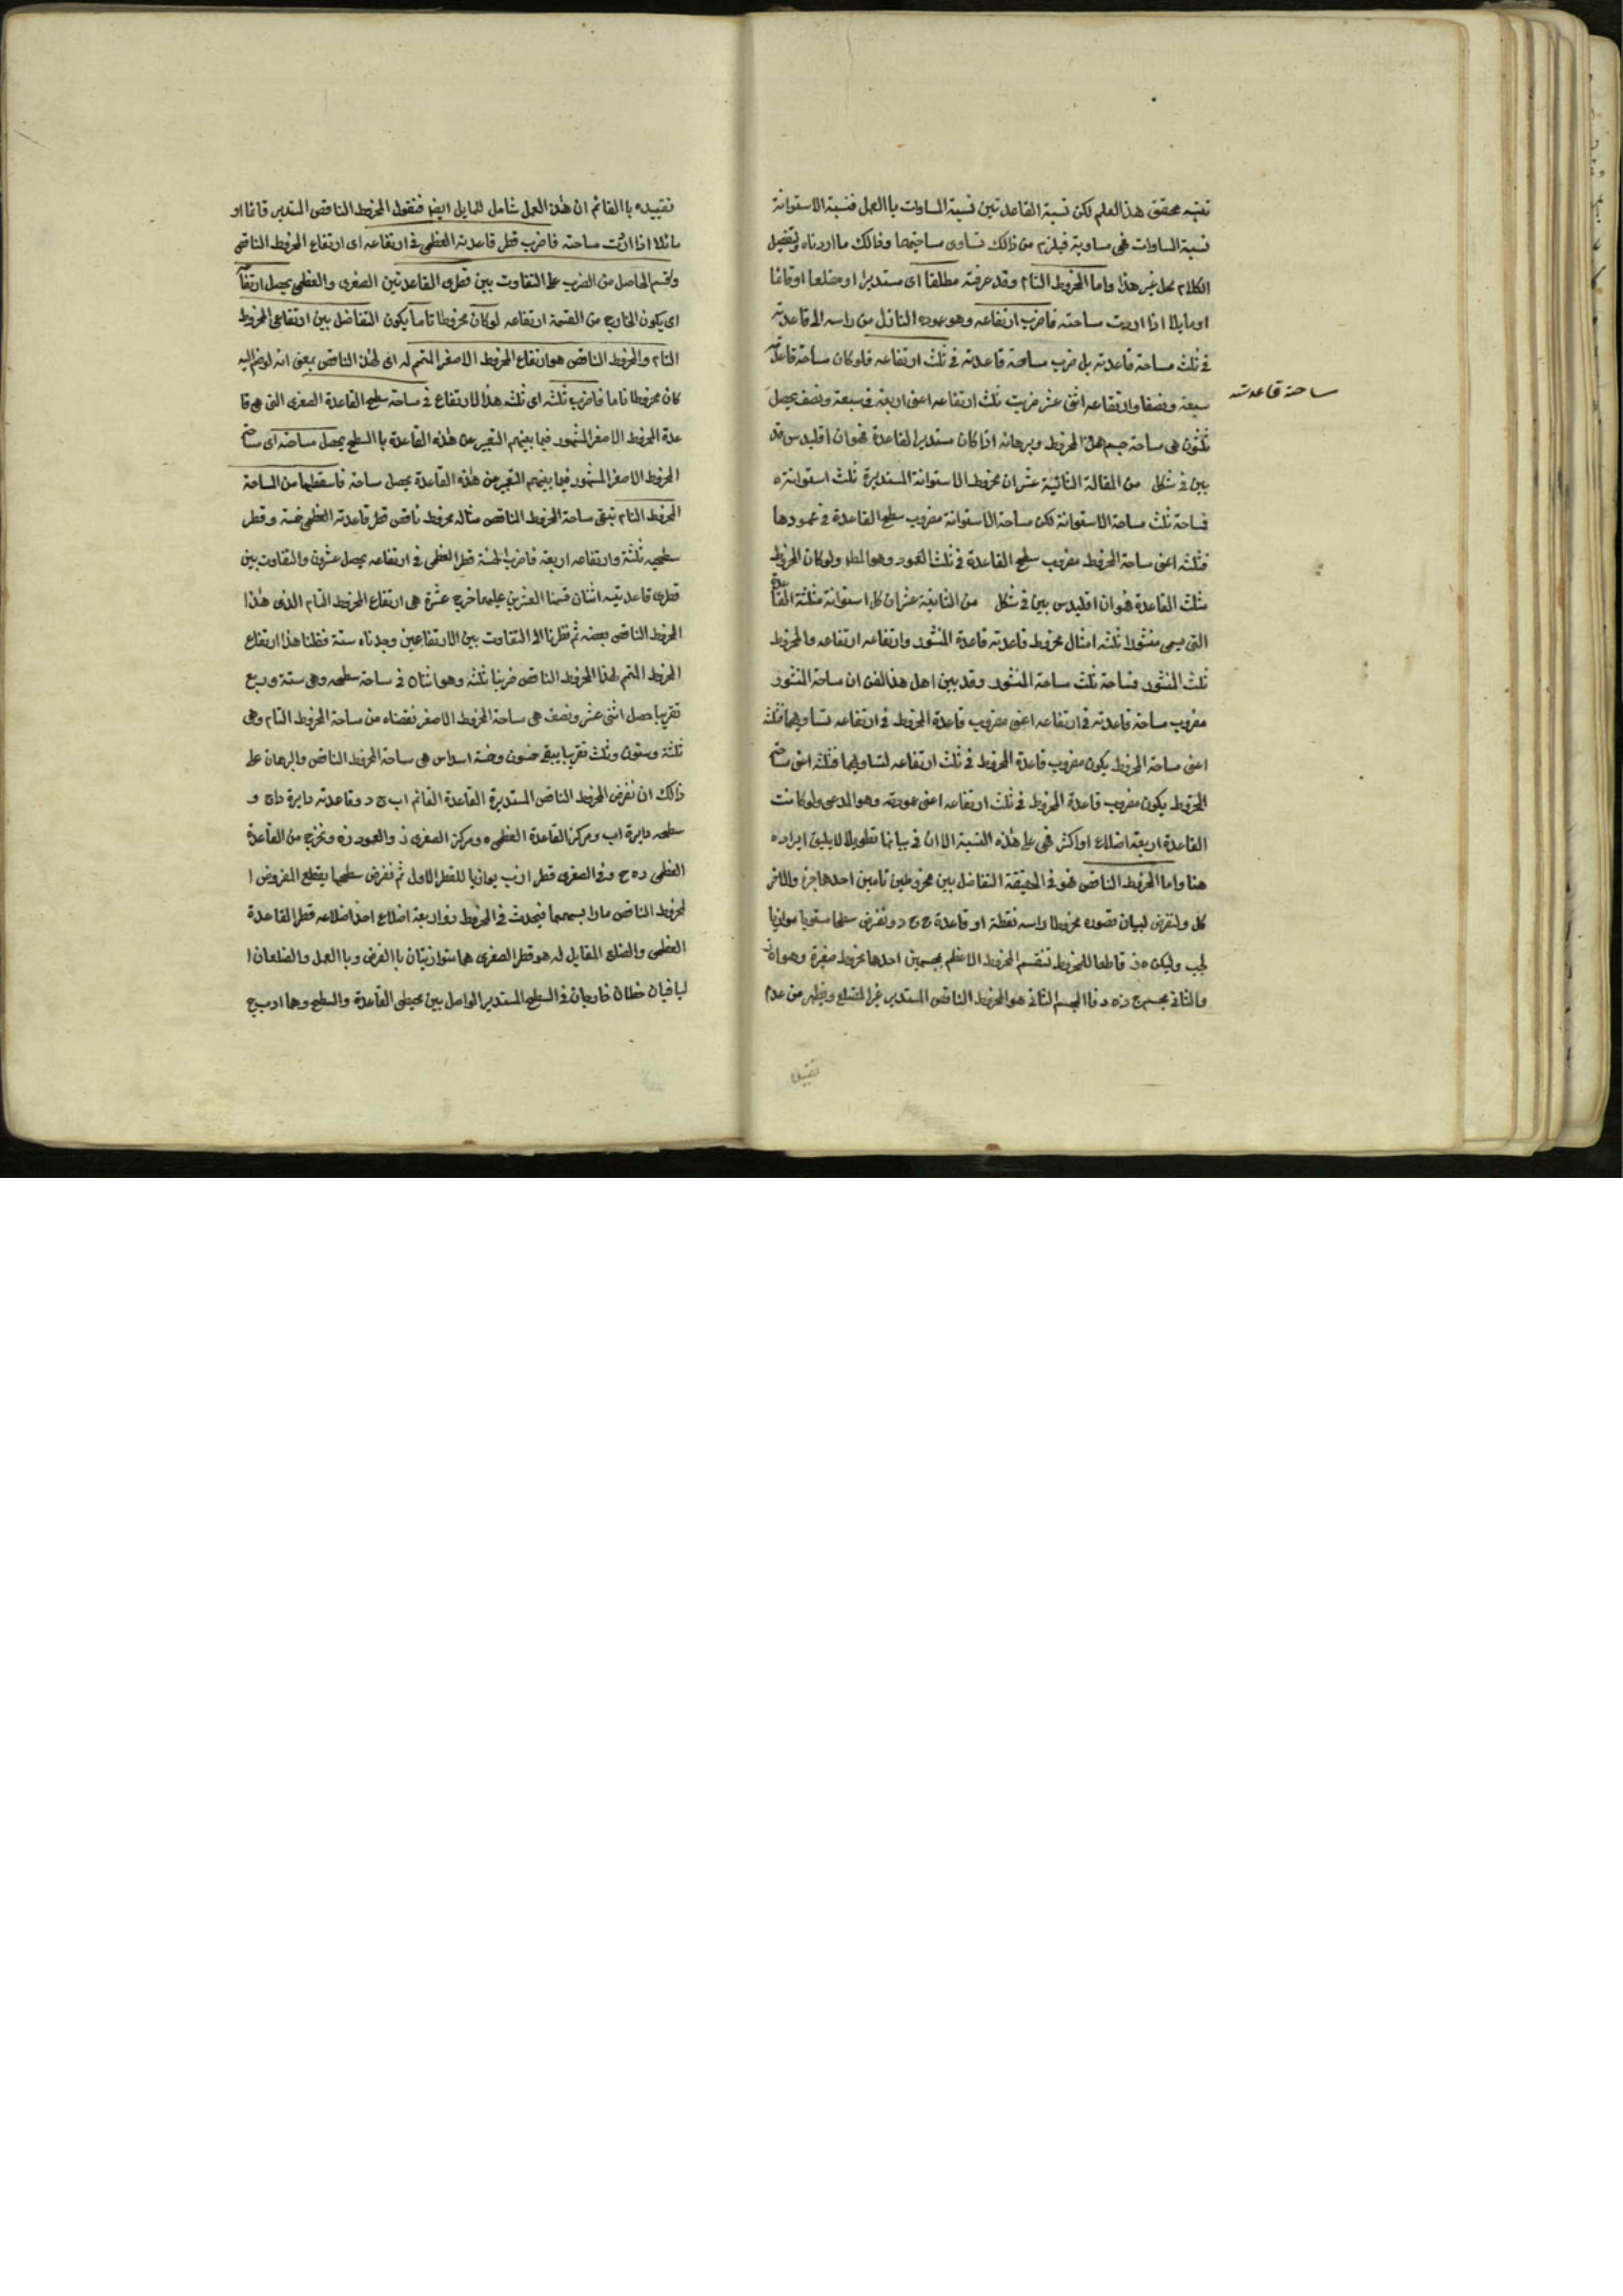 تعنيه محقق هذا العلم لكن نسبة القاعدتين نسبة المساوات باالعمل فنسبة الاسطوانة
نسبة المساوات فهى مساوية فيلزم من ذالك تساوى مساحتيهما وذالك مااردناه وتفصيل
الكلام محل غير هذا واما المخروط التام وقد عرفته مطلقا اى مستديرا او مضلعا او قائما
او مايلا اذا اردت مساحته فاضرب ارتفاعه وهو عموده النازل من راسه الى قاعدته
فى ثلث مساحة قاعدته بل ضرب مساحة قاعدته فى ثلث ارتفاعه فلو كان مساحة قاعدته
ساحة قاعدته
سبعة ونصفا وارتفاعه اثنى عشر ضربت ثلث ارتفاعه اعنى اربعة فى سبعة ونصف يحصل
ثلثون هى مساحة جسم هذا المخروط وبرهانه اذا كان مستديرا لقاعدة هو ان اقليدس قد
بين فى شكل من المقالة الثانية عشر ان مخروط الاستوانة المستديرة ثلث استوانته
فمساحة ثلث مساحة الاستوانة لكن مساحة الاستوانة مضروب سطح القاعدة فى عمودها
فثلثه اعنى مساحة المخروط مضروب سطح القاعدة فى ثلث العمود وهو المط ولو كان المخروط
مثلث القاعدة هو ان اقليدس بين فى شكل من الثانية عشر ان كل استوانة مثلثة القاعدة
التى يسمى منشورا ثلثه امثال مخروط قاعدته قاعدة المنشور وارتفاعه ارتفاعه فالمخروط
ثلث المنشور فمساحة ثلث مساحة المنشور وقد بين اهل هذ الفن ان مساحة المنشور
مضروب مساحة قاعدته فى ارتفاعه اعنى مضروب قاعدة المخروط فى ارتفاعه لتساويهما فثلثه
اعنى مساحة المخروط يكون مضروب قاعدة المخروط فى ثلث ارتفاعه لتساويهما فثلثه اعنى مساحة
المخروط يكون مضروب قاعدة المخروط فى ثلث ارتفاعه اعنى عموديته وهو المدعى ولو كانت
القاعدة اربعة اضلاع او اكثر فهى على هذه النسبة الا ان فى بيانها تطويلا لا يليق ايراده
هنا واما المخروط الناقص فهو فى الحقيقة التفاضل بين مخروطين تامين احدهما جزء والاخر
كل ولنفرض لبيان تصوره مخروطا راسه نقطة او قاعدة ح ح د ونفرض سطحا مستويا موازيا
لجب وليكن ه ز قاطعا للمخروط تنقسم المخروط الاعظم بجسمين احدهما مخروط صغيرة وهو ا ه ز
والثانى بجسم ج ز ه د فاالجسم الثانى هو المخروط الناقص المستدير غير المضلع ويظهر من عدم
تقييده
تقييده باالقائم ان هذ العمل شامل للمايل ايضا فنقول المخروط الناقص المستدير قائما او
مائلا اذا اردت مساحته فاضرب قطر قاعدته العظمى فى ارتفاعه اى ارتفاع المخروط الناقص
واقسم الحاصل من الضرب على التفاوت بين قطرى القاعدتين الصغرى والعظمى يحصل ارتفاعه
اى يكون الخارج من القسمة ارتفاعه لو كان مخروطا تاما يكون التفاضل بين ارتفاعى المخروط
التام والمخروط الناقص هو ارتفاع المخروط الاصغر المتمم له اى لهذ الناقص بمعنى انه لو ضم اليه
كان مخروطا تاما فاضرب ثلثه اى ثلثه هذ الارتفاع فى مساحة سطح القاعدة الصغرى التى هى قا
عدة المخروط الاصغر المشهور فيما بينهم التعبير عن هذه القاعدة باالسطح يحصل مساحته اى مساحة
المخروط الاصغر المشهور فيما بينهم التعبير عن هذه القاعدة يحصل مساحة فاسقطها من المساحة
المخروط التام تبقى مساحة المخروط الناقص مثاله مخروط ناقص قطر قاعدته العظمى خمسة وقطر
سطحه ثلثة وارتفاعه اربعة فاضرب الخمسة قطر العظمى فى ارتفاعه يحصل عشرون والتفاوت بين
قطرى قاعدتيه اثنان قسمنا العشرين عليهما خرج عشرة هى ارتفاع المخروط التام الذى هذا
المخروط الناقص بعضه ثم نظرنا الى التفاوت بين الارتفاعين وجدناه ستة فظننا هذا ارتفاع
المخروط المتمم لهذا المخروط الناقص ضربنا ثلثه وهو اثنان فى مساحة سطحه وهى ستة وربع
تقريبا حصل اثنى عشر ونصف هى مساحة المخروط الاصغر نقصناه من مساحة المخروط التام وهى
ثلثة وستون وثلث تقريبا يبقى خمسون وخمسة اسداس هى مساحة المخروط الناقص والبرهان على
ذالك ان نفرض المخروط الناقص المستديرة القاعدة القائم اب ج د وقاعدته دايرة داج و
سطحه دايرة اب ومركز القاعدة العظمى ه ومركز الصغرى ز والعمود زه ونخرج من القاعدة
العظمى ده ح وفى الصغرى قطر ا ز ب يوازيا للقطر الاول ثم نفرض سطحا يقطع المفروض ا
لمخروط الناقص مارا بسهمهما فيحدث فى المخروط ذو اربعة اضلاع احد اضلاعه قطر القاعدة
العظمى والضلع المقابل له هو قطر الصغرى هما متوازيتان باالفرض وباالعمل والضلعان ا
لباقيان خطان خارجان فى السطح المستدير الواصل بين محيطى القاعدة والسطح وهما ادب ج